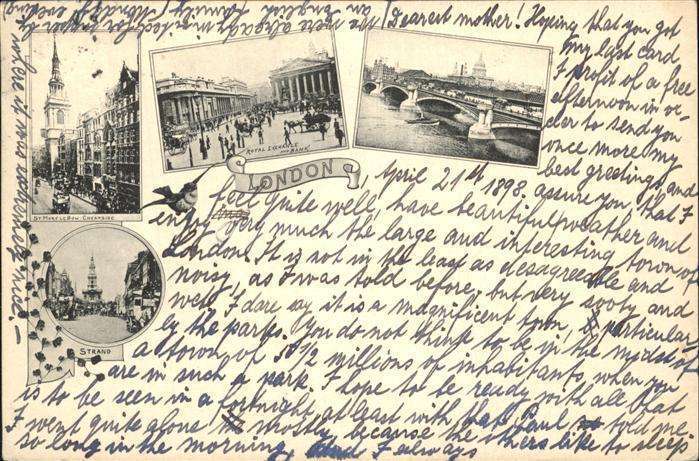 Dearest mother! Hoping that you got
my last card
I profit of a free
afternoon in or-
der to send you
once more my
best greetings, and
April 21st 1898. assure you, that I
feel quite well, have beautiful weather and
enjoy very much the large and interesting town of
London. It is not in the least as desagreeable and
noisy, as I was told before, but very sooty and
well, I dare say it is a magnificent town, particular
by the parks. You do not think to be in the midst of
a town of 5 1/2 millions of inhabitants, when you
are in such a park. I hope to be ready with all that
is to be seen in a fortnight at least with, Paul told me
I went quite alone mostly, because the others like to sleep
so long in the morning, I always
We were already invited for
an English family
where it was extremely nice! –
ST. MARY LE BOW, CHEAPSIDE
ROYAL EXCHANGE
AND BANK
LONDON
STRAND